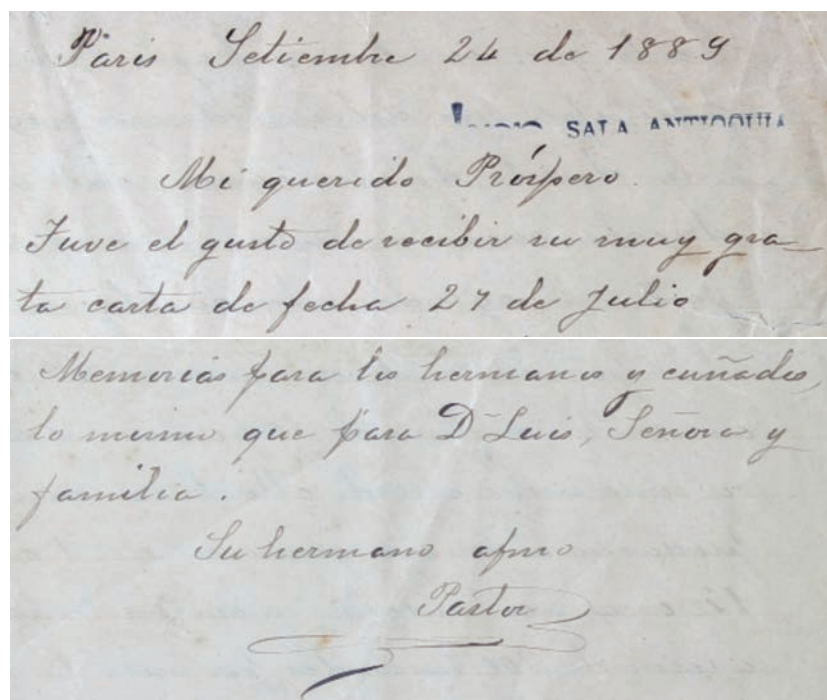 Paris Setiembre 24 de 1889
SALA ANTIOQUIA
Mi querido Próspero.
Tuve el gusto de recibir su muy gra-
ta carta de fecha 27 de Julio
Memorias para los hermanos y cuñados,
lo mismo que para D- Luis, Señora y
familia.
Su hermano afmo
Pastor